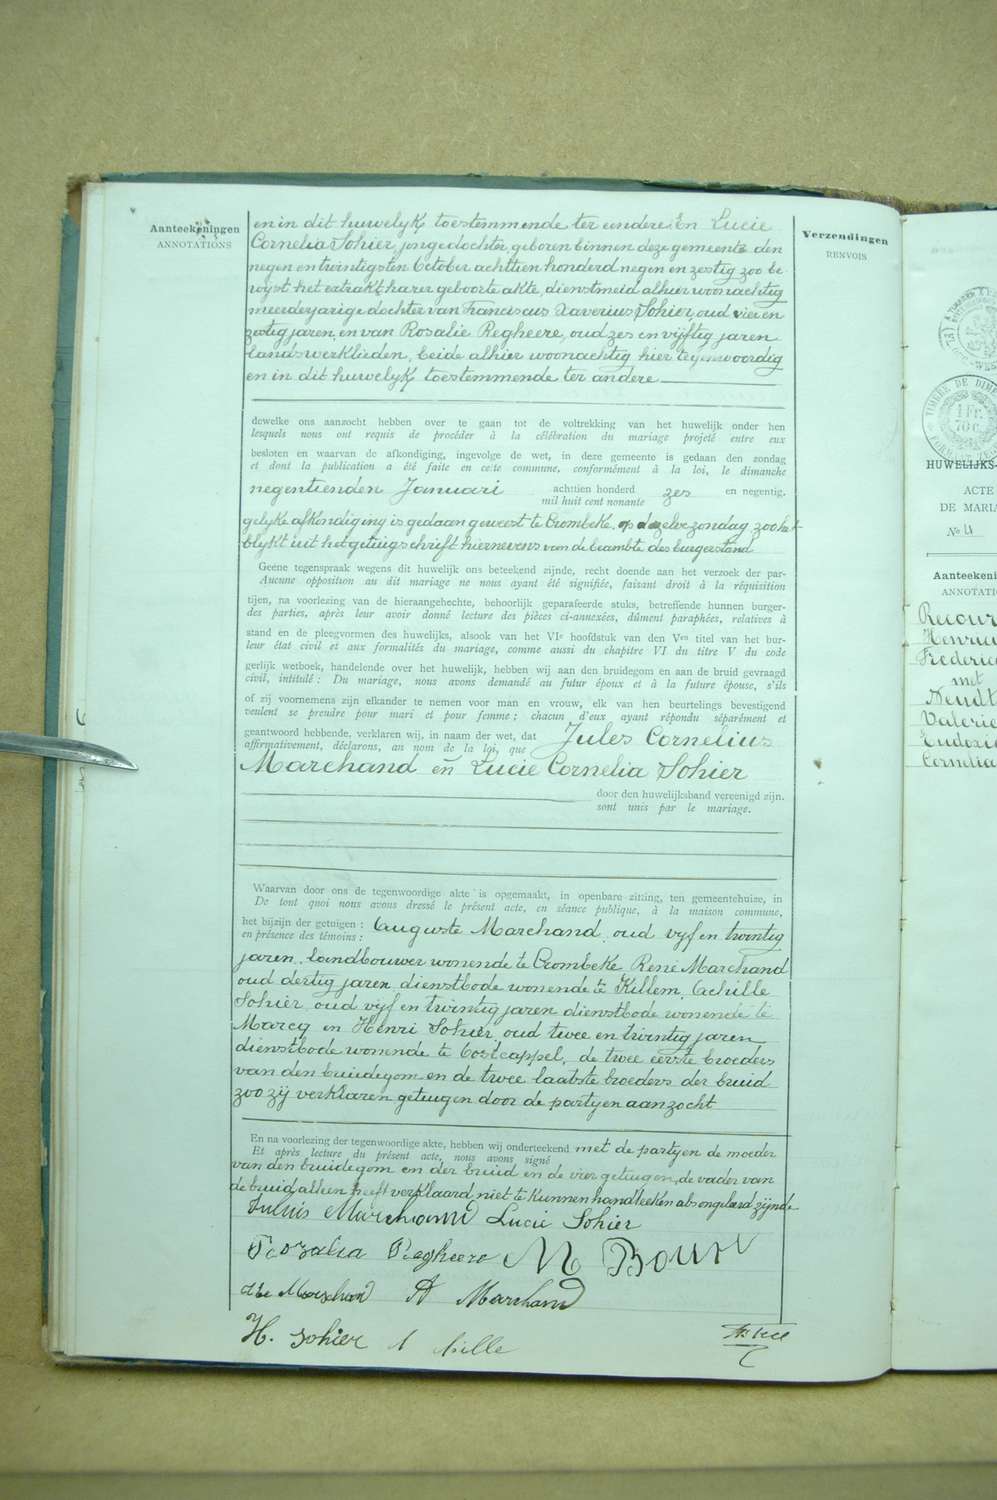 Aanteekeningen
ANNOTATIONS
en in dit huwelijk toestemmende ter eendere. En Lucie
Cornelia Sohier, jongedochter, geboren binnen deze gemeente den
negen en twintigsten October achttien honderd negen en zestig zoo be
wyst het extrakt harer geboorte akte, dienstmeid alhier woonachtig
meerderjarige dochter van Franciscus Xaverius Sohier, oud vier en
zestig jaren, en van Rosalie Regheere, oud zes en vijftig jaren
landswerklieden, beide alhier woonachtig hier tegenwoordig
en in dit huwelyk toestemmende ter andere
dewelke ons aanzocht hebben over te gaan tot de voltrekking van het huwelijk onder hen
lesquels nous ont requis de procéder à la célébration du mariage projeté entre eux
besloten en waarvan de afkondiging, ingevolge de wet, in deze gemeente is gedaan den zondag
et dont la publication a été faite en cette commune, conformément à la loi, le dimanche
negentienden Januari achttien honderd zes en negentig.
mil huit cent nonante
gelyke afkondiging is gedaan geweest te Crombeke op dezelve zondag zoo het
blykt uit het getuigschrift hiernevens van de beambte des burgerstand
Geene tegenspraak wegens dit huwelijk ons beteekend zijnde, recht doende aan het verzoek der par-
Aucune opposition au dit mariage ne nous ayant été signifiée, faisant droit à la réquisition
tijen, na voorlezing van de hieraangehechte, behoorlijk geparafeerde stuks, betreffende hunnen burger-
des parties, après leur avoir donné lecture des pièces ci-annexées, dûment paraphées, relatives à
stand en de pleegvormen des huwelijks, alsook van het VIe hoofdstuk van den Ven titel van het bur-
leur état civil et aux formalités du mariage, comme aussi du chapitre VI du titre V du code
gerlijk wetboek, handelende over het huwelijk, hebben wij aan den bruidegom en aan de bruid gevraagd
civil, intitulé : Du mariage, nous avons demandé au futur époux et à la future épouse, s'ils
of zij voornemens zijn elkander te nemen voor man en vrouw, elk van hen beurtelings bevestigend
veulent se prendre pour mari et pour femme ; chacun d'eux ayant répondu séparément et
geantwoord hebbende, verklaren wij, in naam der wet, dat Jules Cornelius
affirmativement, déclarons, au nom de la loi, que
Marchand en Lucie Cornelia Sohier
door den huwelijksband vereenigd zijn.
sont unis par le mariage.
Waarvan door ons de tegenwoordige akte is opgemaakt, in openbare zitting, ten gemeentehuize, in
De tout quoi nous avons dressé le présent acte, en séance publique, à la maison commune,
het bijzijn der getuigen : Auguste Marchand, oud vyf en twintig
en présence des témoins :
jaren, landbouwer wonende te Crombeke René Marchand
oud dertig jaren dienstbode wonende te Killem, Achille
Sohier, oud vijf en twintig jaren dienstbode wonende te
Marcq en Henri Sohier, oud twee en twintig jaren
dienstbode wonende te Oostcappel, de twee eerste broeders
van den bruidegom en de twee laatste broeders der bruid
zoo zij verklaren getuigen door de partyen aanzocht
En na voorlezing der tegenwoordige akte, hebben wij onderteekend met de partyen de moeder
Et après lecture du présent acte, nous avons signé
van den bruidegom en der bruid en de vier getuigen, de vader van
de bruid alleen heeft verklaard niet te kunnen handteeken als ongeleerd zijnde
Julius Marchand Lucie Sohier
Rozalia Regheere M Boury
Marchand A Marchand
H. Sohier A hille
Verzendingen
RENVOIS
TIMBRE DE DIME
1 Fr.
70 C.
HUWELIJKS-
ACTE
DE MARIA
No 4
Aanteekeni
ANNOTATIO
Recour
Henricu
Frederic
met
Deudt
Valerie
Eudoxie
Cornelia